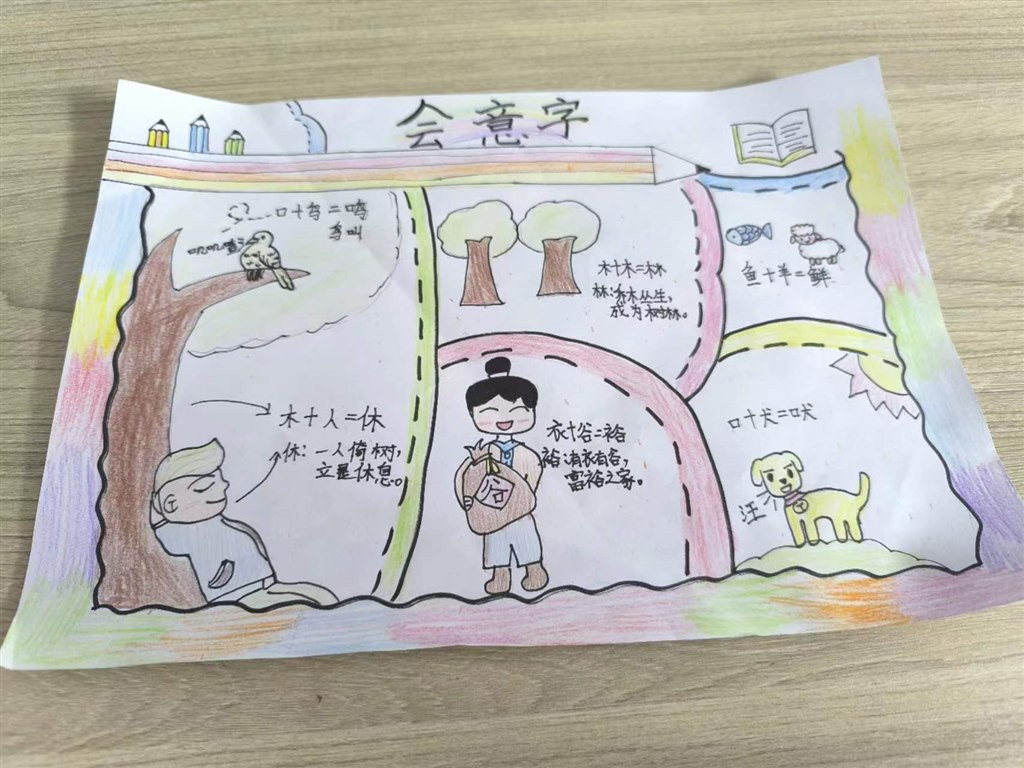 会意字
口十鸟二鸣
鸟叫
叽叽喳
木十人=休
休：一人倚树，
立是休息。
木十木=林
林：乔木丛生，
成为树林。
衣十谷=裕
裕：有衣有谷，
富裕之家。
谷
鱼十羊=鲜
口十犬=吠
汪